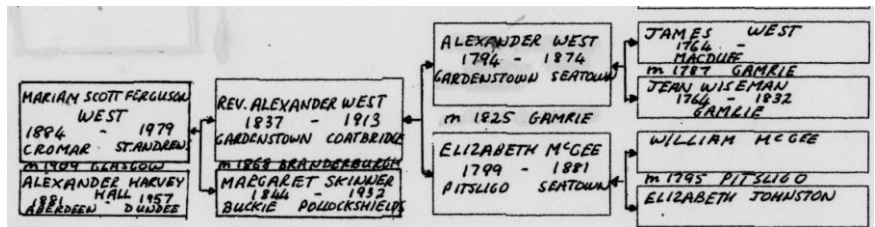 MARIAM SCOTT FERGUSON
WEST
1884 - 1979
CROMAR ST.ANDREWS
m 1909 GLASGOW
ALEXANDER HARVEY
HALL
1881 1957
ABERDEEN - DUNDEE
REV. ALEXANDER WEST
1837 - 1913
GARDENSTOWN COATBRIDGE
m 1868 BRANDERBURGH
MARGARET SKINNER
1844 - 1932
BUCKIE POLLOCKSHIELDS
ALEXANDER WEST
1794 - 1874
GARDENSTOWN SEATOWN
m 1825 GAMRIE
ELIZABETH McGEE
1799 - 1881
PITSLIGO SEATOWN
JAMES WEST
1764 -
MACDUFF
m 1787 GAMRIE
JEAN WISEMAN
1764 - 1832
GAMRIE
WILLIAM McGEE
m 1795 PITSLIGO
ELIZABETH JOHNSTON